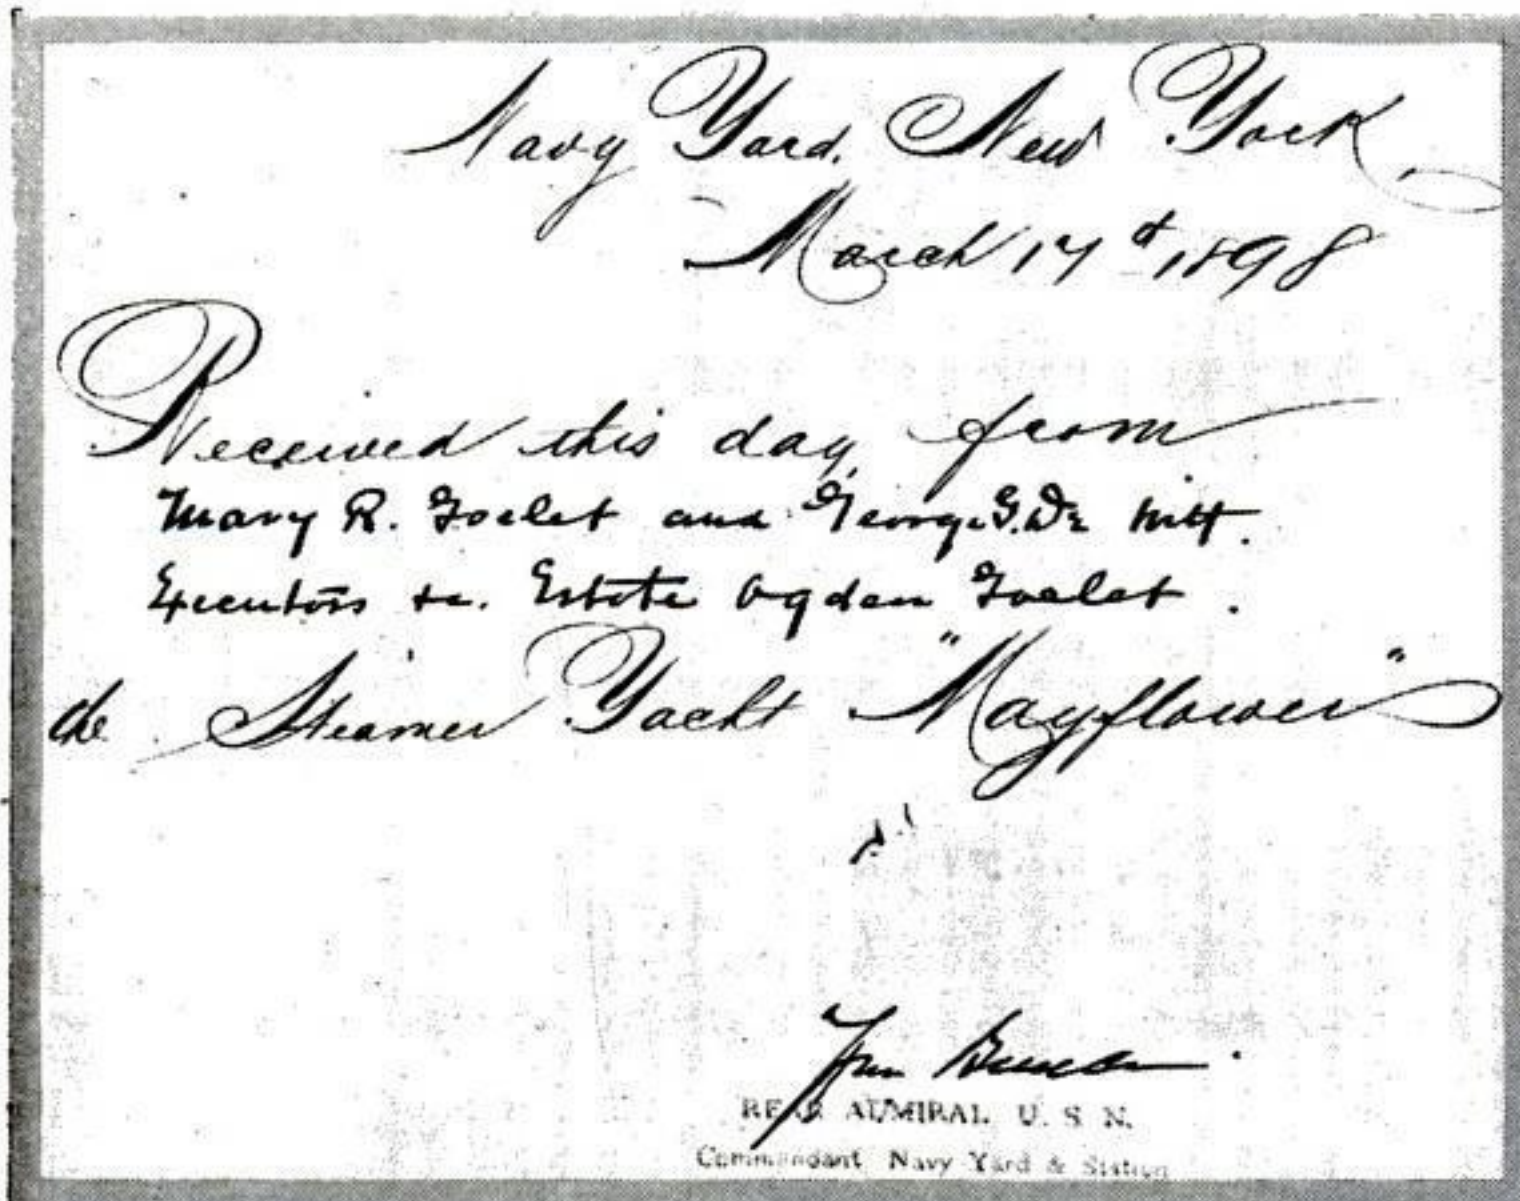 Navy Yard, New York,
March 17th 1898
Received this day from
Mary R. Goelet and George G. De Witt.
Executors &c. Estate Ogden Goelet.
the Steamer Yacht "Mayflower"
REAR ADMIRAL U. S. N.
Commandant Navy Yard & Station